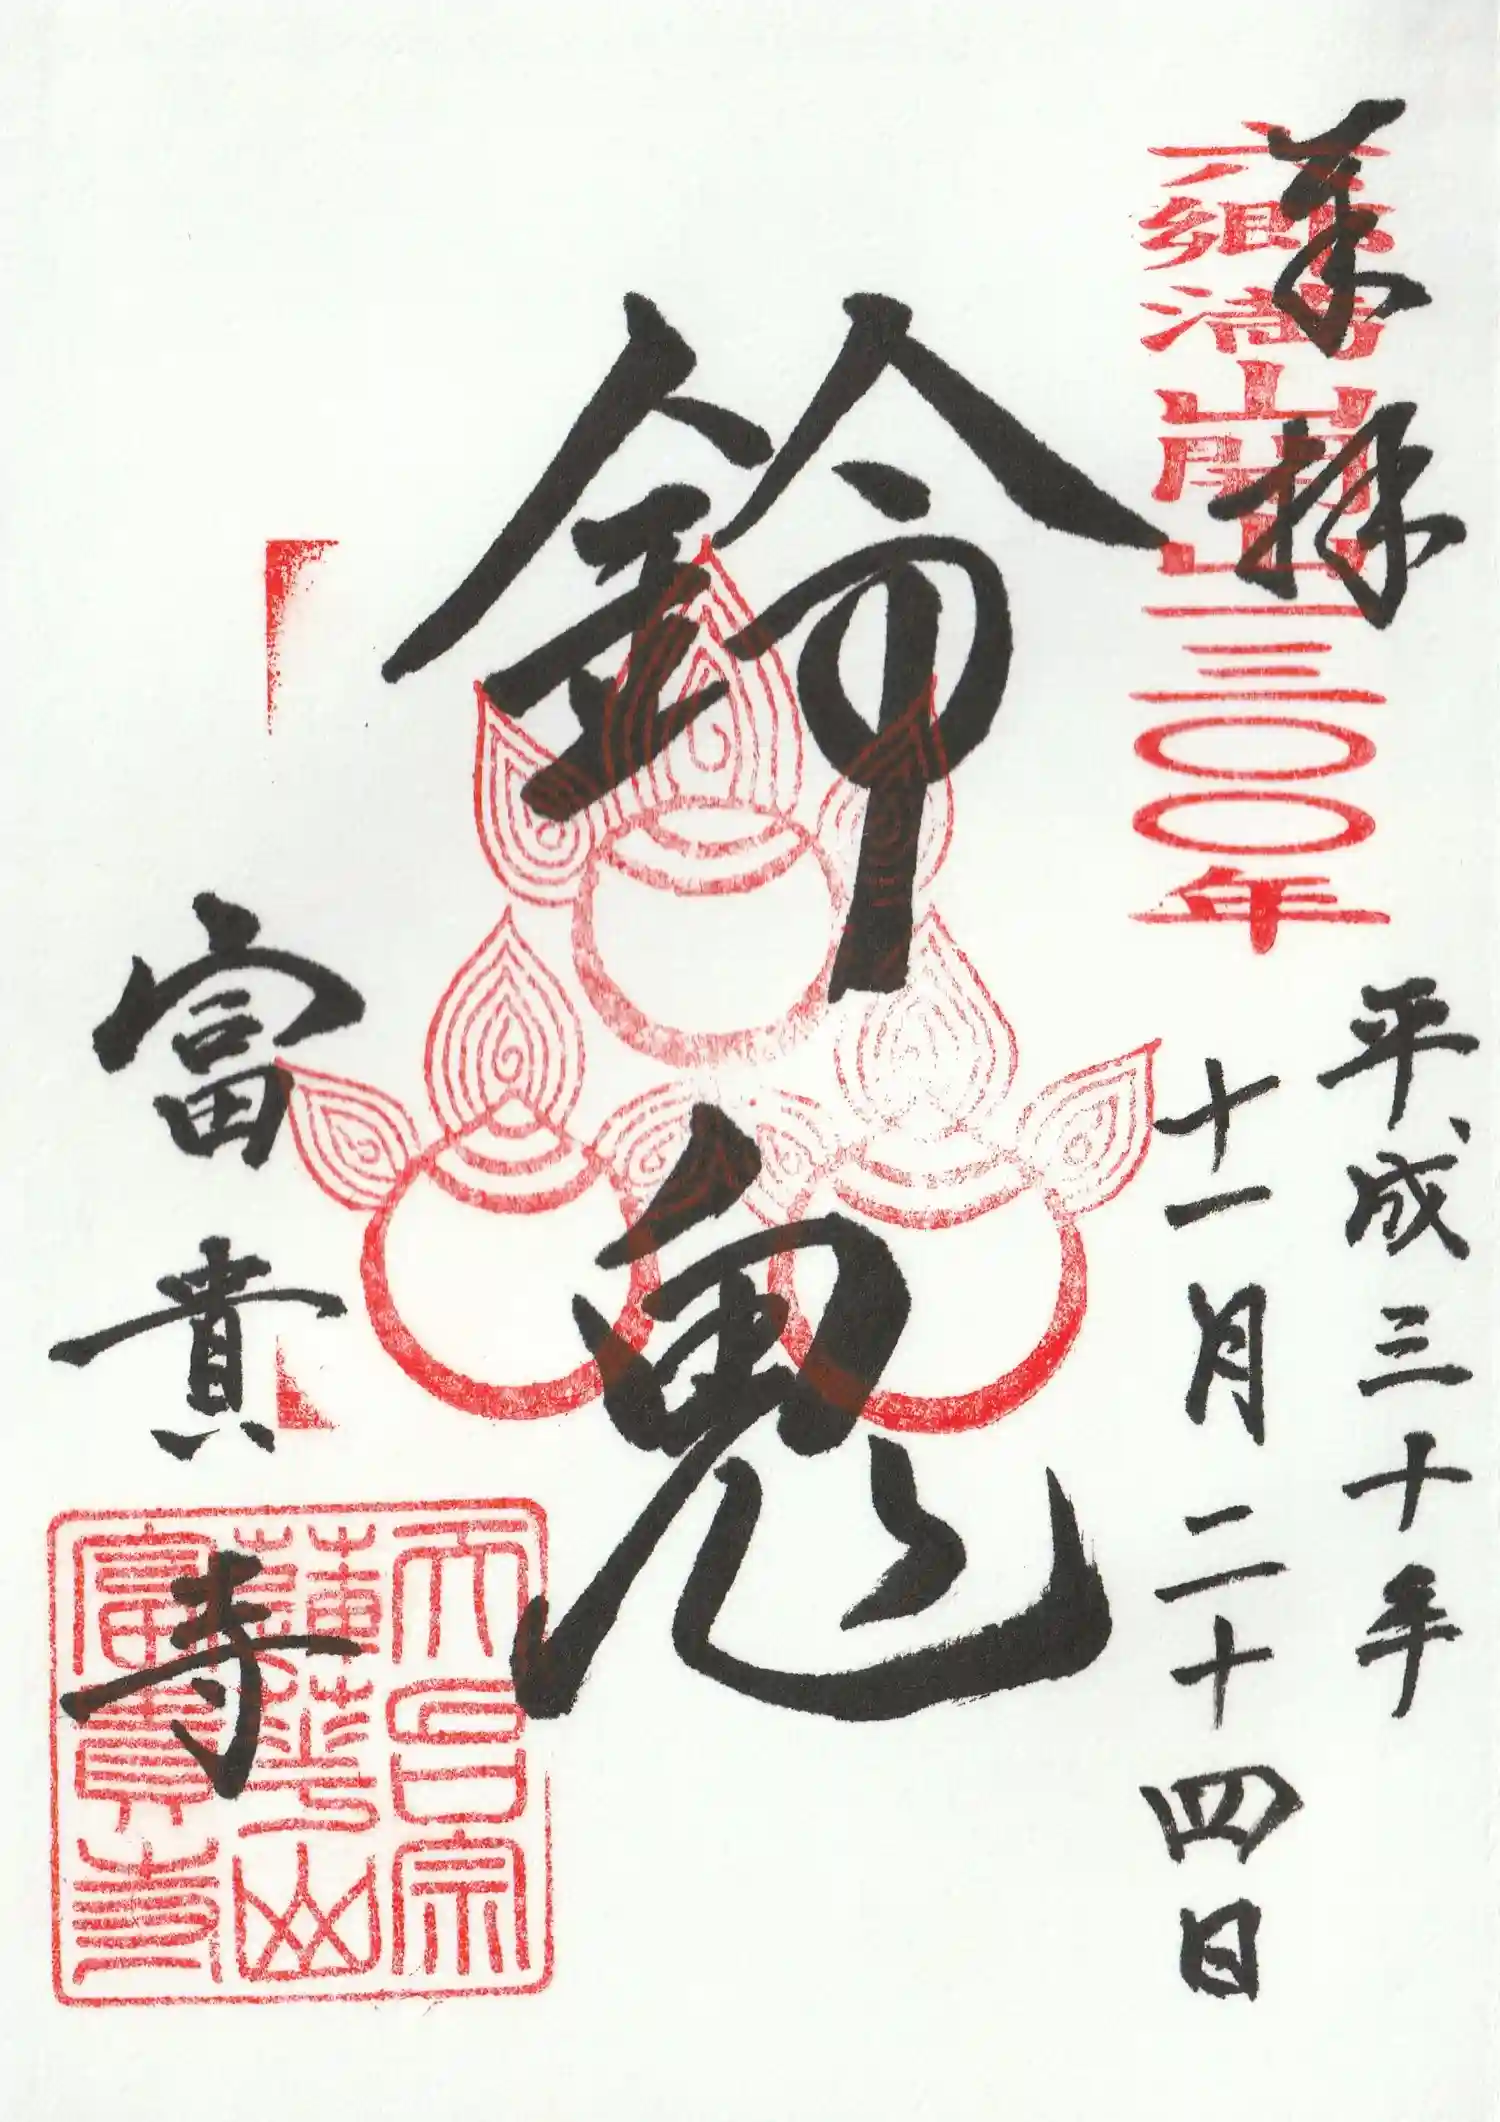 奉拝
六郷満山開山一三〇〇年
平成三十年
十一月二十四日
鈴鬼
富貴寺
天台宗
蓮華山
富貴寺